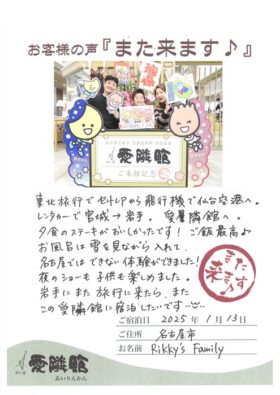 お客様の声『また来ます♪』
愛隣館
ご来館記念
東北旅行でセントレアから飛行機で仙台空港へ。
レンタカーで宮城→岩手。愛隣館へ。
夕食のステーキがおいしかったです! ご飯最高♪
お風呂は雪を見ながら入れて、
名古屋ではできない体験ができました!
夜のショーも子供も楽しめました。
岩手にまた旅行に来たら、また
この愛隣館に宿泊したいです
また来ます♪
ご宿泊日 2025年1月13日
ご住所 名古屋市
お名前 Rikky's Family
愛隣館
あいりんかん